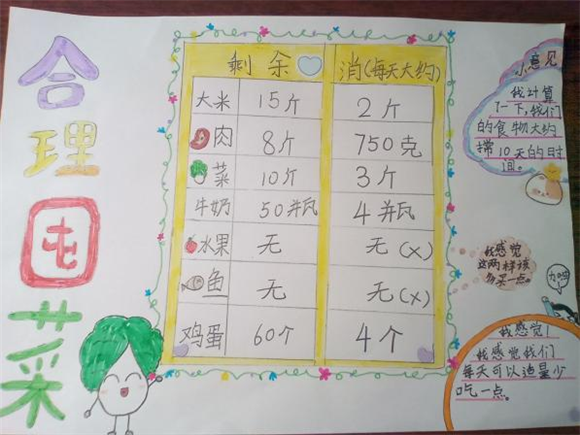 合理囤菜
剩余 消(每天大约)
大米 15斤 2斤
肉 8斤 750克
菜 10斤 3斤
牛奶 50瓶 4瓶
水果 无 无(×)
鱼 无 无(×)
鸡蛋 60个 4个
小意见
我计算
了一下,我们
的食物大约
撑10天的时
间。
我感觉
这两样该
多买一点。
加油
我感觉!
我感觉我们
每天可以适量少
吃一点。